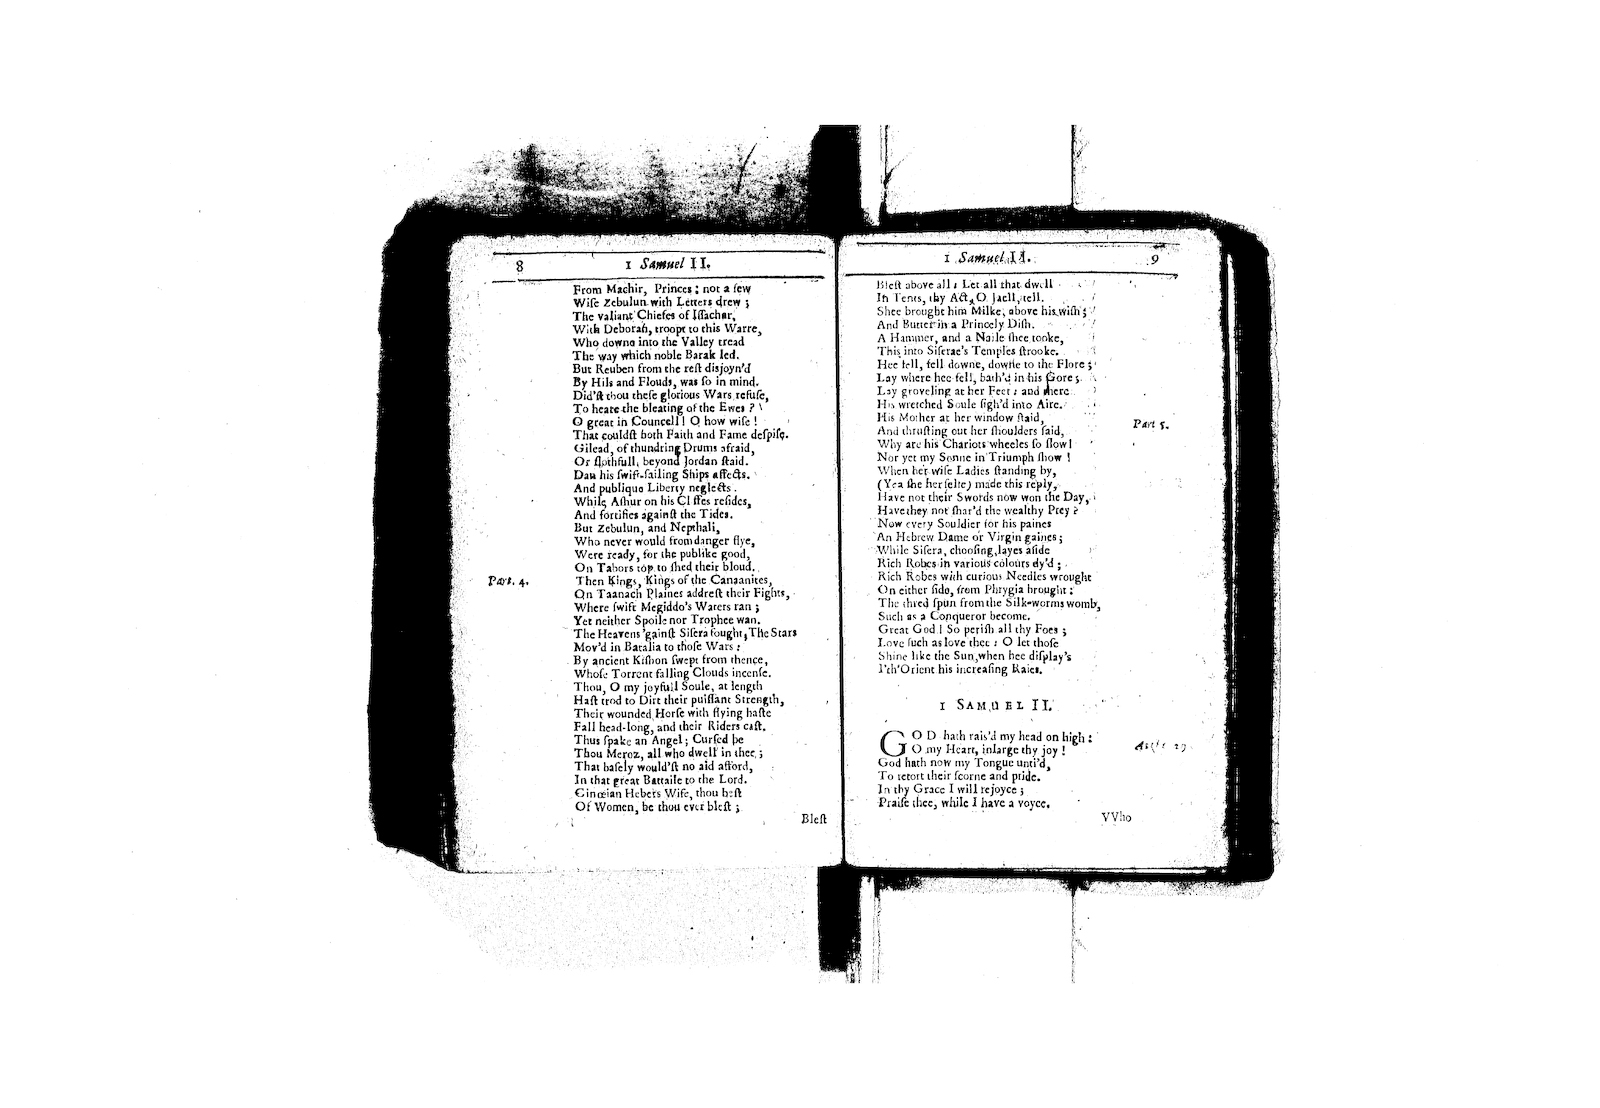 8
1 Samuel II.
From Machir, Princes: not a few
Wiſe Zebulun with Letters drew;
The valiant Chiefes of Iſſachar,
With Deborah, troopt to this Warre,
Who downe into the Valley tread
The way which noble Barak led.
But Reuben from the reſt disjoyn'd
By Hils and Flouds, was ſo in mind.
Did'ſt thou theſe glorious Wars refuſe,
To heare the bleating of the Ewes?
O great in Councell! O how wiſe!
That couldſt both Faith and Fame deſpiſe.
Gilead, of thundring Drums afraid,
Or ſlothfull, beyond Jordan ſtaid.
Dan his ſwift-ſailing Ships affects.
And publique Liberty neglects.
While Aſhur on his Cliffes reſides,
And fortifies againſt the Tides.
But Zebulun, and Nepthali,
Who never would from danger flye,
Were ready, for the publike good,
On Tabors top to ſhed their bloud.
Part. 4.
Then Kings, Kings of the Canaanites,
On Taanach Plaines addreſt their Fights,
Where ſwift Megiddo's Waters ran;
Yet neither Spoile nor Trophee wan.
The Heavens 'gainſt Siſera fought, The Stars
Mov'd in Batalia to thoſe Wars:
By ancient Kiſhon ſwept from thence,
Whoſe Torrent falling Clouds incenſe.
Thou, O my joyfull Soule, at length
Haſt trod to Dirt their puiſſant Strength,
Their wounded Horſe with flying haſte
Fall head-long, and their Riders caſt.
Thus ſpake an Angel; Curſed be
Thou Meroz, all who dwell in thee;
That baſely would'ſt no aid afford,
In that great Battaile to the Lord.
Cinœian Hebers Wife, thou beſt
Of Women, be thou ever bleſt;
Bleſt
1 Samuel II.
9
Bleſt above all: Let all that dwell
In Tents, thy Act, O Jaell, tell.
Shee brought him Milke, above his wiſh;
And Butter in a Princely Diſh.
A Hammer, and a Naile ſhee tooke,
This into Siſerae's Temples ſtrooke.
Hee fell, fell downe, downe to the Flore;
Lay where hee fell, bath'd in his Gore;
Lay groveling at her Feet: and there
His wretched Soule ſigh'd into Aire.
His Mother at her window ſtaid,
Part 5.
And thruſting out her ſhoulders ſaid,
Why are his Chariots wheeles ſo ſlow!
Nor yet my Sonne in Triumph ſhow!
When her wiſe Ladies ſtanding by,
(Yea ſhe her ſelfe) made this reply,
Have not their Swords now won the Day,
Have they not ſhar'd the wealthy Prey?
Now every Souldier for his paines
An Hebrew Dame or Virgin gaines;
While Siſera, chooſing, layes aſide
Rich Robes in various colours dy'd;
Rich Robes with curious Needles wrought
On either ſide, from Phrygia brought:
The thred ſpun from the Silk-worms womb,
Such as a Conqueror become.
Great God! So periſh all thy Foes;
Love ſuch as love thee: O let thoſe
Shine like the Sun, when hee diſplay's
I'th'Orient his increaſing Raies.
1 SAMUEL II.
GOD hath rais'd my head on high:
O my Heart, inlarge thy joy!
God hath now my Tongue unti'd,
To retort their ſcorne and pride.
In thy Grace I will rejoyce;
Praiſe thee, while I have a voyce.
VVho